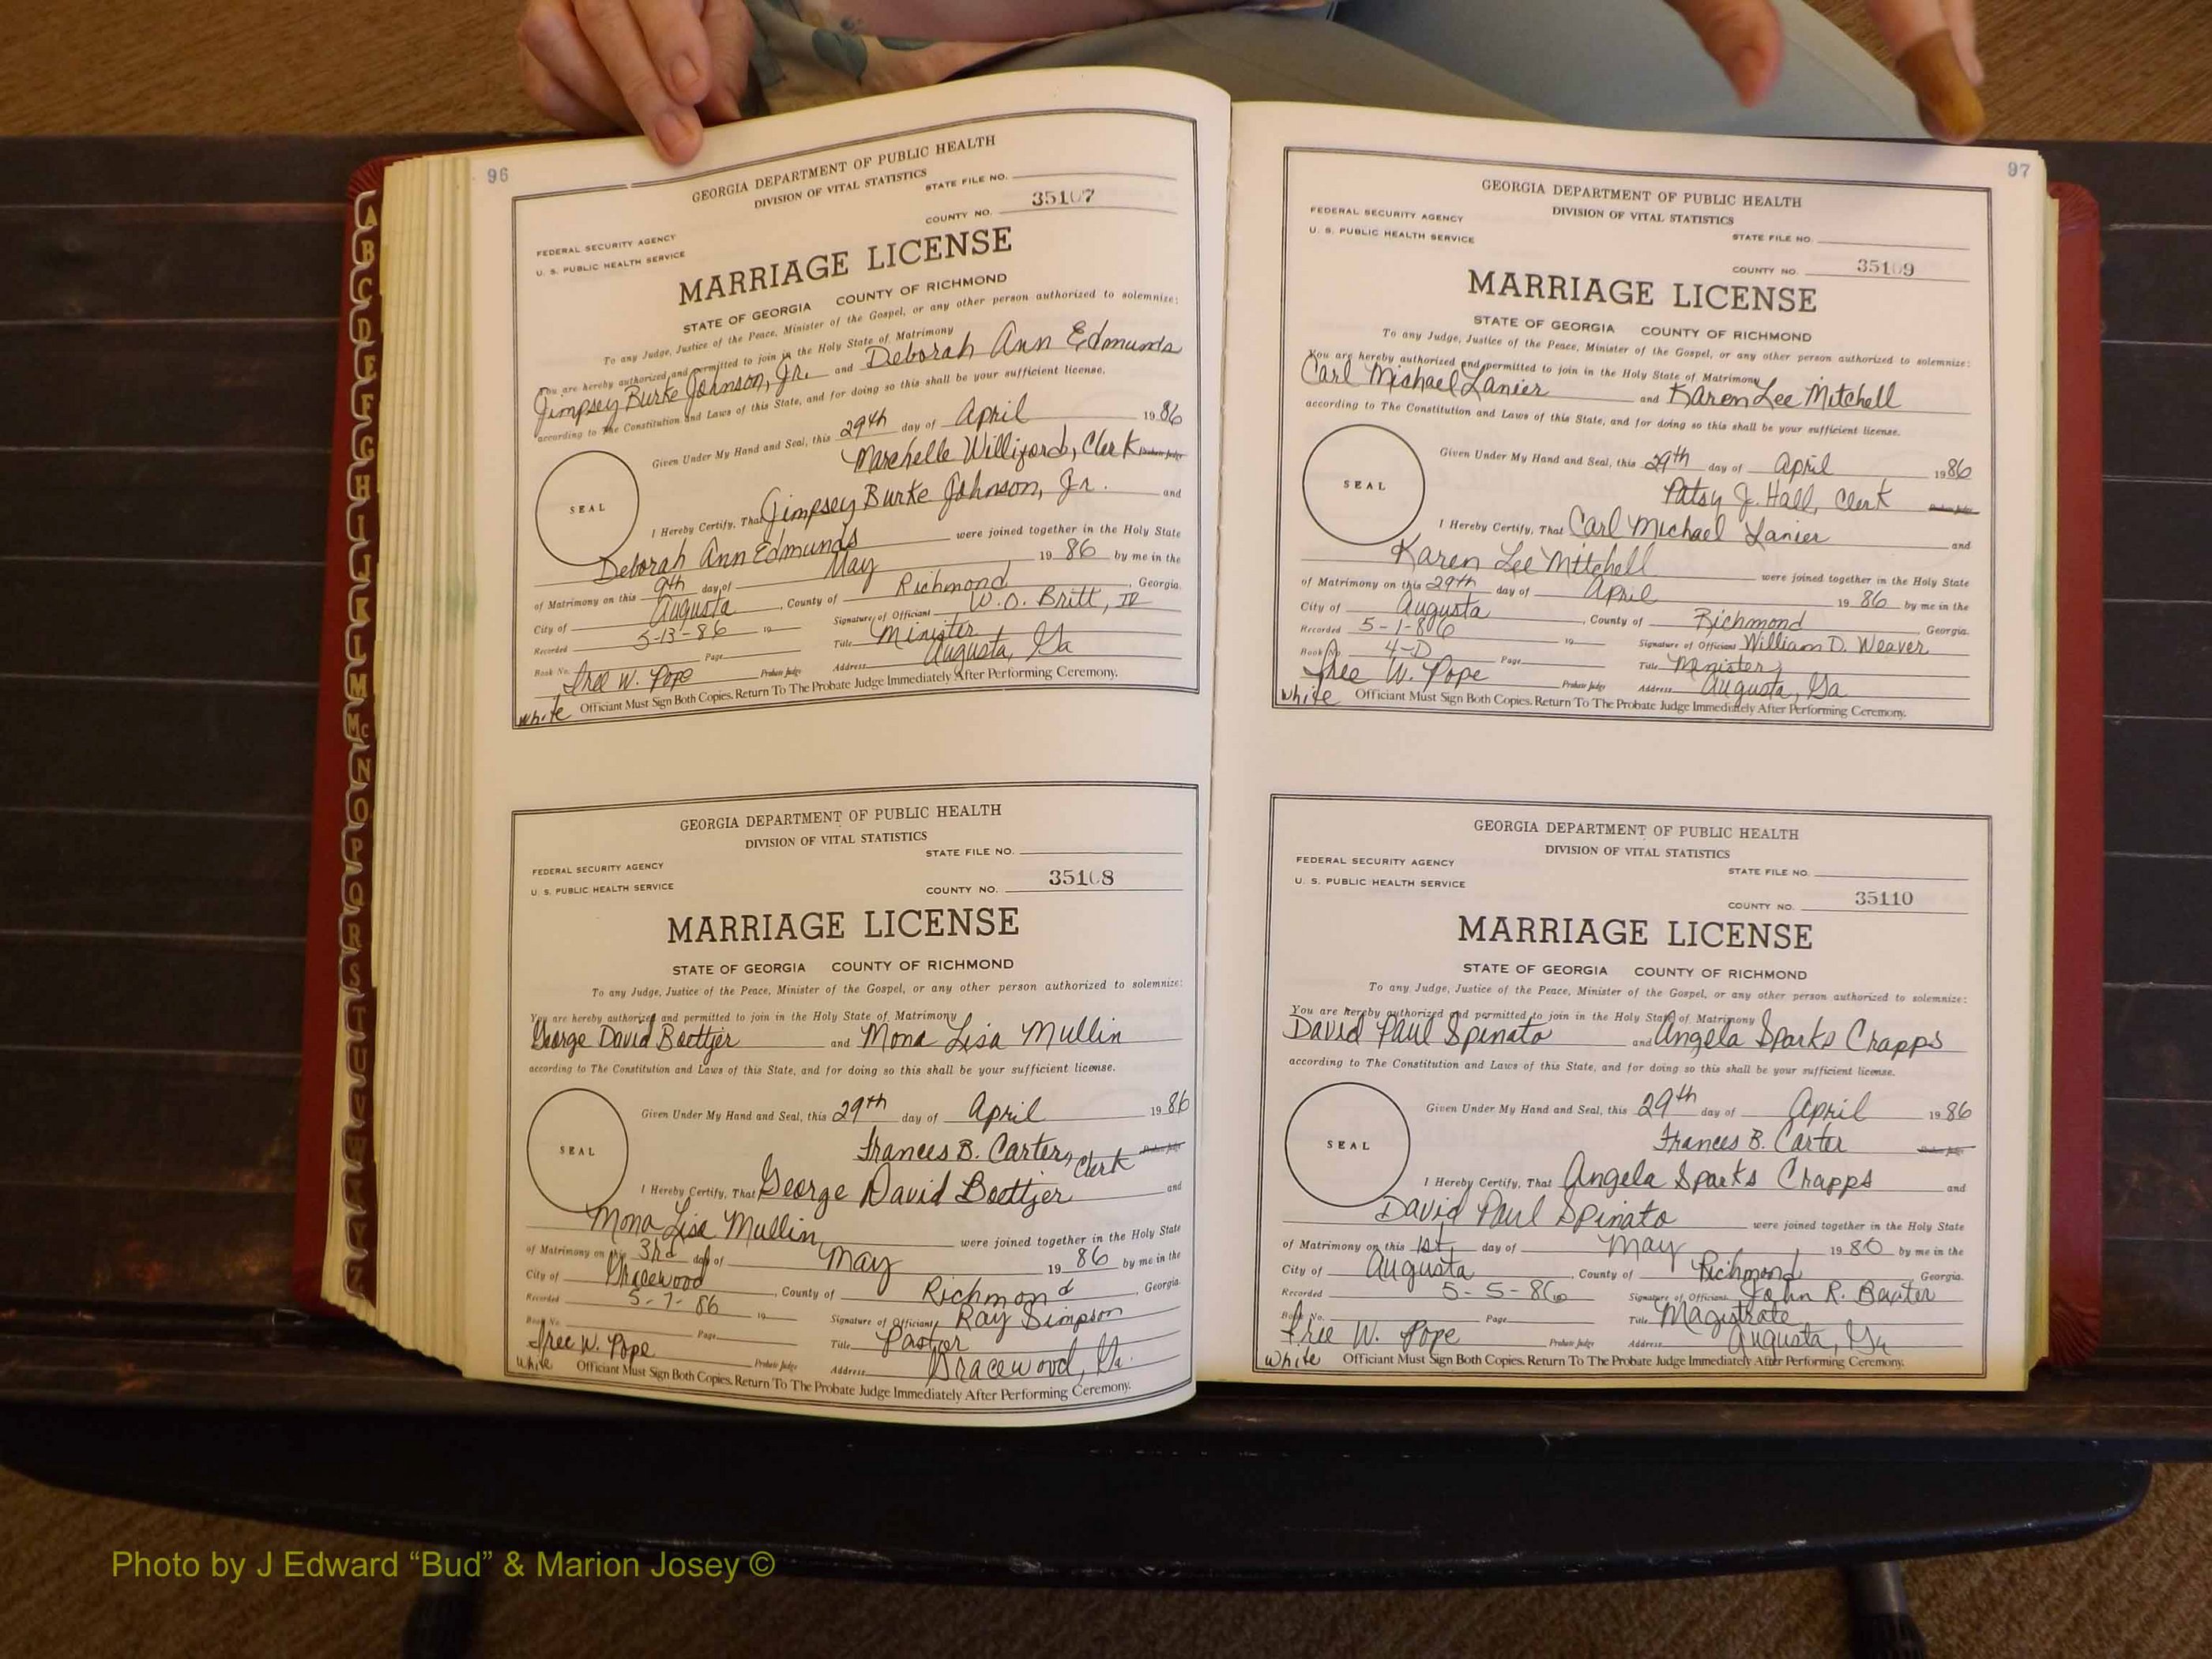 96
GEORGIA DEPARTMENT OF PUBLIC HEALTH
DIVISION OF VITAL STATISTICS
STATE FILE NO.
COUNTY NO. 35107
FEDERAL SECURITY AGENCY
U. S. PUBLIC HEALTH SERVICE
MARRIAGE LICENSE
STATE OF GEORGIA COUNTY OF RICHMOND
To any Judge, Justice of the Peace, Minister of the Gospel, or any other person authorized to solemnize:
You are hereby authorized and permitted to join in the Holy State of Matrimony
Jimpsey Burke Johnson, Jr. and Deborah Ann Edmunds
according to The Constitution and Laws of this State, and for doing so this shall be your sufficient license.
Given Under My Hand and Seal, this 29th day of April 1986
Marchelle Williford, Clerk Probate Judge
SEAL
I Hereby Certify, That Jimpsey Burke Johnson, Jr. and
Deborah Ann Edmunds were joined together in the Holy State
of Matrimony on this 9th day of May 1986 by me in the
City of Augusta, County of Richmond, Georgia.
Recorded 5-13-86 19 Signature of Officiant W. O. Britt, IV
Book No. Page Title Minister
Free W. Pope Probate Judge Address Augusta, Ga
white Officiant Must Sign Both Copies. Return To The Probate Judge Immediately After Performing Ceremony.
GEORGIA DEPARTMENT OF PUBLIC HEALTH
DIVISION OF VITAL STATISTICS
STATE FILE NO.
FEDERAL SECURITY AGENCY
U. S. PUBLIC HEALTH SERVICE
COUNTY NO. 35108
MARRIAGE LICENSE
STATE OF GEORGIA COUNTY OF RICHMOND
To any Judge, Justice of the Peace, Minister of the Gospel, or any other person authorized to solemnize:
You are hereby authorized and permitted to join in the Holy State of Matrimony
George David Boettjer and Mona Lisa Mullin
according to The Constitution and Laws of this State, and for doing so this shall be your sufficient license.
Given Under My Hand and Seal, this 29th day of April 1986
Frances B. Carter, Clerk Probate Judge
SEAL
I Hereby Certify, That George David Boettjer and
Mona Lisa Mullin, were joined together in the Holy State
of Matrimony on this 3rd day of May 1986 by me in the
City of Gracewood, County of Richmond, Georgia.
Recorded 5-7-86 19 Signature of Officiant Ray Simpson
Book No. Page Title Pastor
Free W. Pope Probate Judge Address Gracewood, Ga.
white Officiant Must Sign Both Copies. Return To The Probate Judge Immediately After Performing Ceremony.
97
GEORGIA DEPARTMENT OF PUBLIC HEALTH
DIVISION OF VITAL STATISTICS
FEDERAL SECURITY AGENCY
U. S. PUBLIC HEALTH SERVICE
STATE FILE NO.
COUNTY NO. 35109
MARRIAGE LICENSE
STATE OF GEORGIA COUNTY OF RICHMOND
To any Judge, Justice of the Peace, Minister of the Gospel, or any other person authorized to solemnize:
You are hereby authorized and permitted to join in the Holy State of Matrimony
Carl Michael Lanier and Karen Lee Mitchell
according to The Constitution and Laws of this State, and for doing so this shall be your sufficient license.
Given Under My Hand and Seal, this 29th day of April 1986
Patsy J. Hall, Clerk Probate Judge
SEAL
I Hereby Certify, That Carl Michael Lanier and
Karen Lee Mitchell were joined together in the Holy State
of Matrimony on this 29th day of April 1986 by me in the
City of Augusta, County of Richmond Georgia.
Recorded 5-1-86 19 Signature of Officiant William D. Weaver
Book No. 4-D Page Title Minister
Free W. Pope Probate Judge Address Augusta, Ga
white Officiant Must Sign Both Copies. Return To The Probate Judge Immediately After Performing Ceremony.
GEORGIA DEPARTMENT OF PUBLIC HEALTH
DIVISION OF VITAL STATISTICS
FEDERAL SECURITY AGENCY
U. S. PUBLIC HEALTH SERVICE
STATE FILE NO.
COUNTY NO. 35110
MARRIAGE LICENSE
STATE OF GEORGIA COUNTY OF RICHMOND
To any Judge, Justice of the Peace, Minister of the Gospel, or any other person authorized to solemnize:
You are hereby authorized and permitted to join in the Holy State of Matrimony
David Paul Spinato and Angela Sparks Crapps
according to The Constitution and Laws of this State, and for doing so this shall be your sufficient license.
Given Under My Hand and Seal, this 29th day of April 1986
Frances B. Carter Probate Judge
SEAL
I Hereby Certify, That Angela Sparks Crapps and
David Paul Spinato were joined together in the Holy State
of Matrimony on this 1st day of May 1986 by me in the
City of Augusta, County of Richmond, Georgia.
Recorded 5-5-86 19 Signature of Officiant John R. Baxter
Book No. Page Title Magistrate
Free W. Pope Probate Judge Address Augusta, Ga
white Officiant Must Sign Both Copies. Return To The Probate Judge Immediately After Performing Ceremony.
A
B
C
D
E
F
G
H
I
J
K
L
M
Mc
N
O
P
Q
R
S
T
U
V
W
X
Y
Z
Photo by J Edward “Bud” & Marion Josey ©